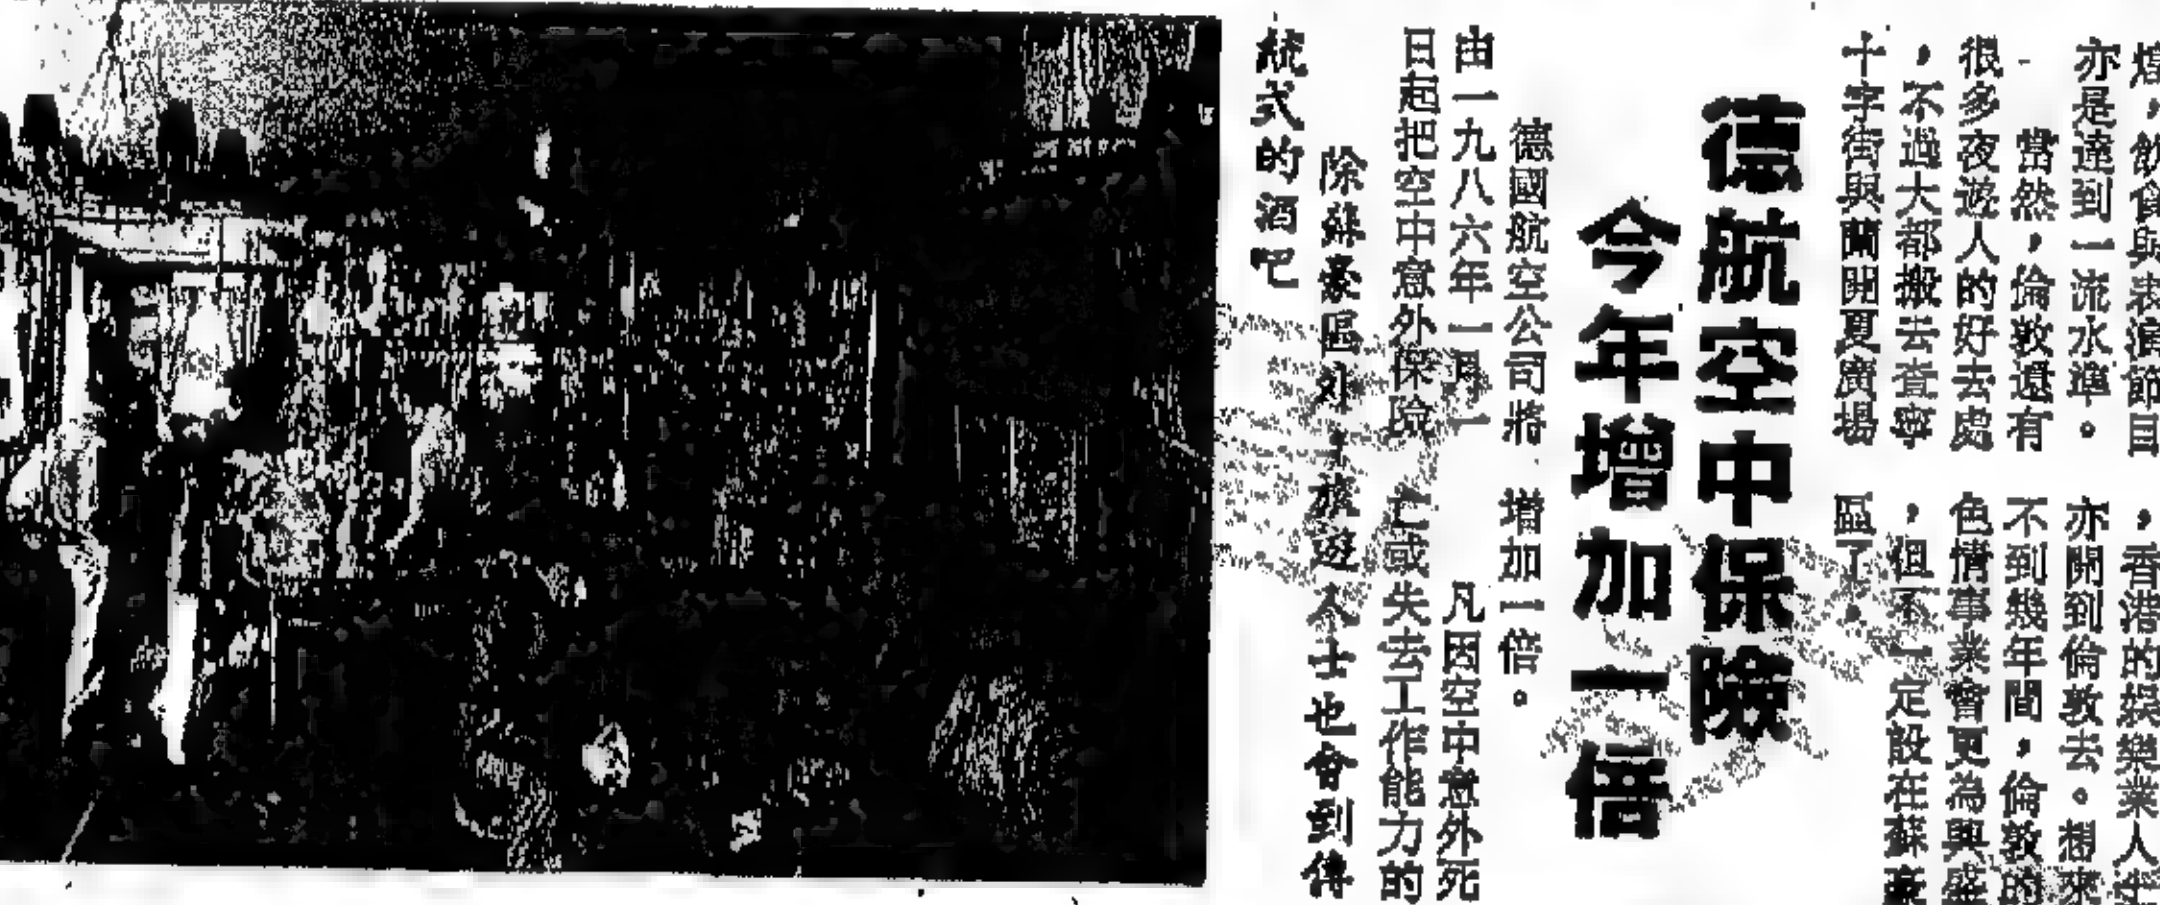 ，飲食與表演節目
亦是達到一流水準。
當然，倫敦還有
很多夜遊人的好去處
，不過大都搬去查寧
十字街與蘭開夏廣場
，香港的娛樂業人
亦開到倫敦去。想來
不到幾年間，倫敦的
色情事業會更為興盛
，但不一定設在蘇豪
區了。
德航空中保險
今年增加一倍
德國航空公司將
由一九八六年一月一
日起把空中意外保險
增加一倍。
凡因空中意外死
亡或失去工作能力的
除蘇豪區外，旅遊人士也會到傳
統式的酒吧